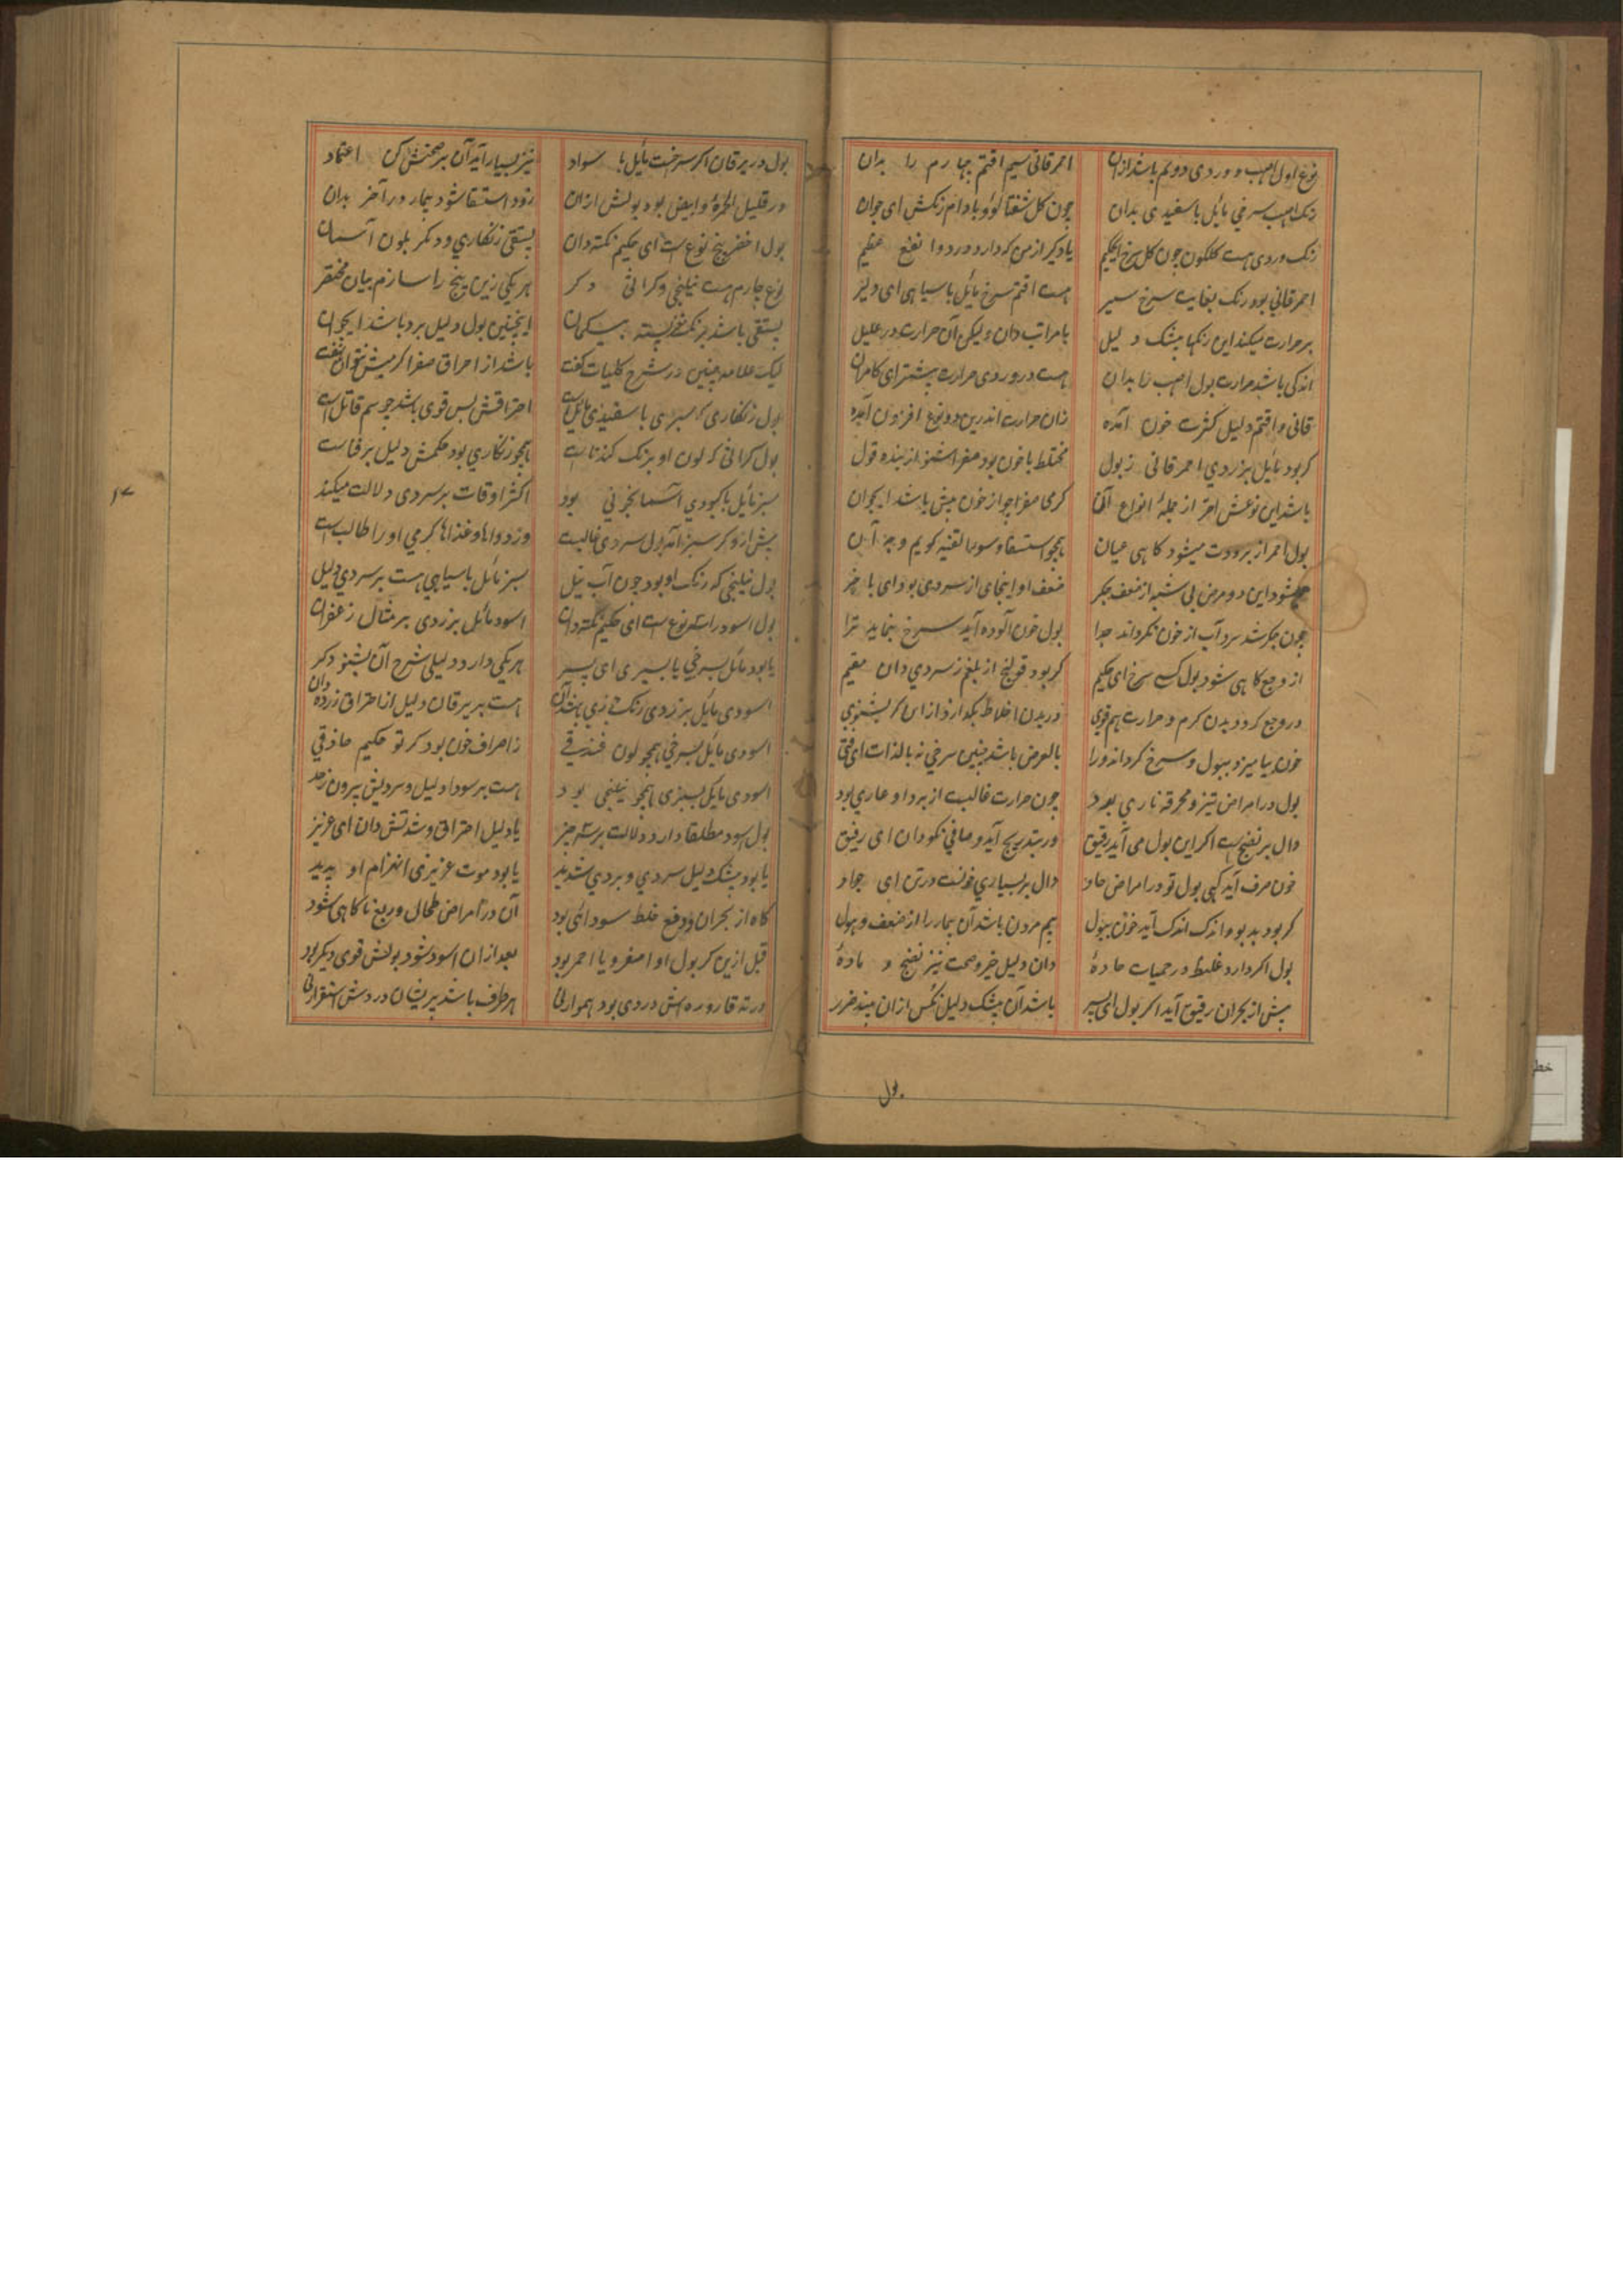 نوع اول اصهب و وردی دویم باشد ازان
احمر قانی سیم اقتم چهارم را بدان
رنک اصهب سرخی مائل با سفیدی بدان
چون کل شفتالو و بادام رنکش ای جوان
رنک وردی هست کلکون چون کل سرخ ای حکیم
یاد کیر از من که دارد ورد دوا نفع عظیم
احمر قانی بود رنک بغایت سرخ سیر
هست اقتم سرخ مائل با سیاهی ای دلیر
بر حرارت میکند این رنکها بیشک دلیل
با مراتب دان ولیکن آن حرارت در علیل
اندکی باشد حرارت بول اصهب را بدان
هست در وردی حرارت بیشتر ای کامران
قانی و اقتم دلیل کثرت خون آمده
زان حرارت اندرین دو نوع افزون آمده
کر بود مایل بزردی احمر قانی ز بول
مختلط با خون بود صفرا شنو از بنده قول
باشد این نوعش احر از جملهٔ انواع آن
کرمی صفرا چو از خون بیش باشد ای جوان
بول احمر از برودت میشود کاهی عیان
همچو استسقا و سوء القنیه کویم وجه آن
میشود این دو مرض بی شبه از ضعف جکر
ضعف او اینجای از سردی بود ای با خبر
چون جکر شد سرد آب از خون نکرداند جدا
بول خون آلوده آید سرخ بنماید ترا
از وجع کاهی شود بول کسی سرخ ای حکیم
کر بود قولنج از بلغم ز سردی دان مقیم
در وجع کردد بدن کرم و حرارت هم قوی
در بدن اخلاط بکدازد ازان کر بشنوی
خون بیامیزد ببول و سرخ کرداند ورا
بالعرض باشد چنین سرخی نه بالذات ای فتی
بول در امراض تیز و محرقه ناری بود
چون حرارت غالبست از برد او عاری بود
دال بر نضج است اکر این بول می آید رقیق
ور بتدریج آید و صافی نکو دان ای رفیق
خون صرف آید کهی بول تو در امراض حاد
دال بر بسیاری خونست در تن ای جواد
کر بود بدبو و اندک اندک آید خون ببول
بیم مردن باشد آن بیمار را از ضعف و هول
بول اکر دارد غلیظ در حمیات حاده
دان دلیل خیر و صحت نیز نضج و ماده
پیش از بحران رقیق آید اکر بول ای پسر
باشد آن بیشک دلیل نکس ازان بیند ضرر
بول
بول در یرقان اکر سرخست مائل با سواد
نیز بسیار آید آن بر صحتش کن اعتماد
ور قلیل الحمرة و ابیض بود بولش ازان
زود استسقا شود بیمار در آخر بدان
بول اخضر پنج نوع است ای حکیم نکته دان
پستقی زنکاری و دیکر بلون آسمان
نوع چارم هست نیلنجی و کراثی دکر
هر یکی زین پنج را سازم بیان مختصر
پستقی باشد برنک مغز پسته بیکمان
اینچنین بول دلیل برد باشد ای جوان
لیک علامه چنین در شرح کلیات کفت
باشد از احراق صفرا کر میش نتوان نهفت
بول زنکاری که سبزی با سفیدی مایل است
احتراقش بس قوی باشد چو سم قاتل است
بول کراثی که لون او برنک کندناست
همچو زنکاری بود حکمش دلیل بر فناست
سبز مائل با کبودی آسمانجونی بود
اکثر اوقات بر سردی دلالت میکند
پیش ازو کر سبز آمد بول سردی غالبست
وز دواها و غذاها کرمی او را طالبست
بول نیلنجی که رنک او بود چون آب نیل
سبز مائل با سیاهی هست بر سردی دلیل
بول اسود را سه نوع است ای حکیم نکته دان
اسود مائل بزردی بر مثال زعفران
یا بود مائل بسرخی یا بسبزی ای پسر
هر یکی دارد دلیلی شرح آن بشنو دکر
اسودی مایل بزردی رنک زیی باشد آن
هست بر یرقان دلیل از احتراق زرده دان
اسودی مائل بسرخی همچو لون فندقی
ز احراق خون بود کر تو حکیم حاذقی
اسودی مایل بسبزی همچو نیلنجی بود
هست بر سودا دلیل و سردیش بیرون ز حد
بول اسود مطلقا دارد دلالت بر سه چیز
یا دلیل احتراق و شدتش دان ای عزیز
یا بود بیشک دلیل سردی و بردی شدید
یا بود موت غریزی انهزام او پدید
کاه از بحران و دفع خلط سودائی بود
آن در امراض طحال و ربع نا کاهی شود
قبل ازین کر بول او اصفر و یا احمر بود
بعد ازان اسود شود بولش قوی دیکر بود
در ته قاروره اش دردی بود هموار نی
هر طرف باشد پریشان دردش استقرار نی
۱۷